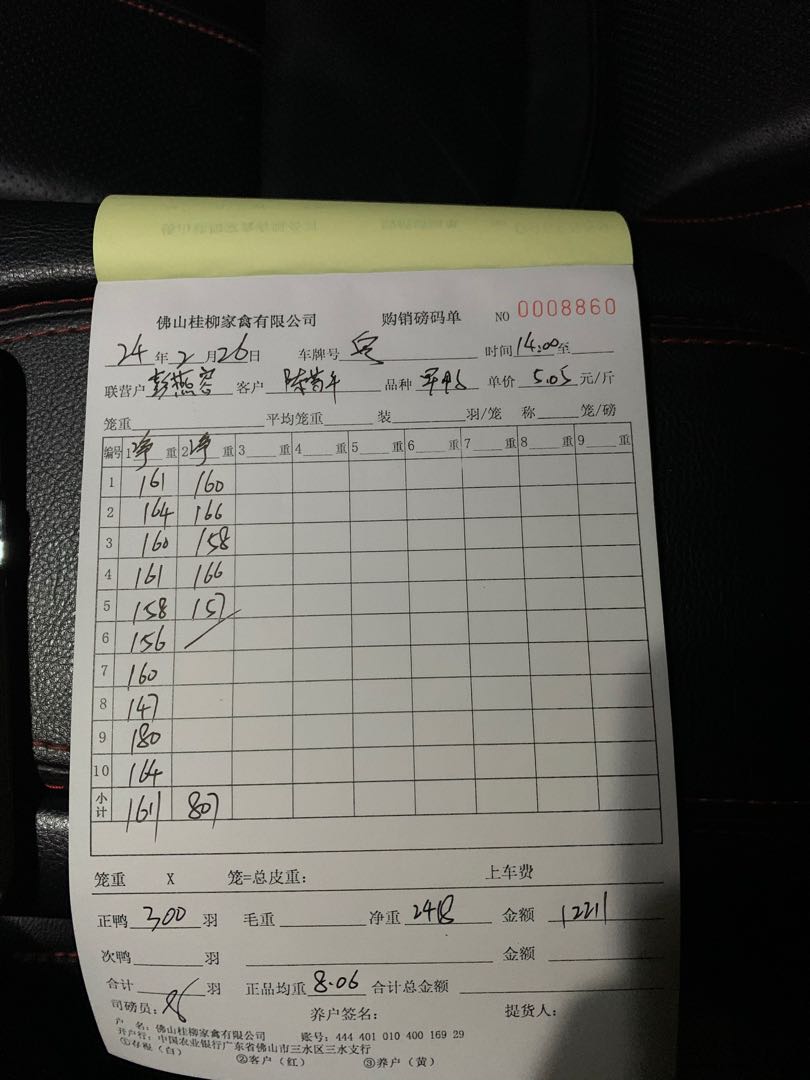 佛山桂柳家禽有限公司 购销磅码单 NO 0008860
24年2月26日 车牌号 时间14:00至
联营户 彭燕容 客户 品种 单价 5.05 元/斤
笼重 平均笼重 装 羽/笼 称 笼/磅
编号 1净重 2净重 3 重 4 重 5 重 6 重 7 重 8 重 9 重
1 161 160
2 164 166
3 160 158
4 161 166
5 158 157
6 156
7 160
8 147
9 180
10 164
小计 1611 807
笼重 X 笼=总皮重: 上车费
正鸭 300 羽 毛重 净重 2418 金额 12211
次鸭 羽 金额
合计 羽 正品均重 8.06 合计总金额
司磅员: 养户签名: 提货人:
户 名: 佛山桂柳家禽有限公司 账号: 444 401 010 400 169 29
开户行: 中国农业银行广东省佛山市三水区三水支行
①存根(白) ②客户(红) ③养户(黄)